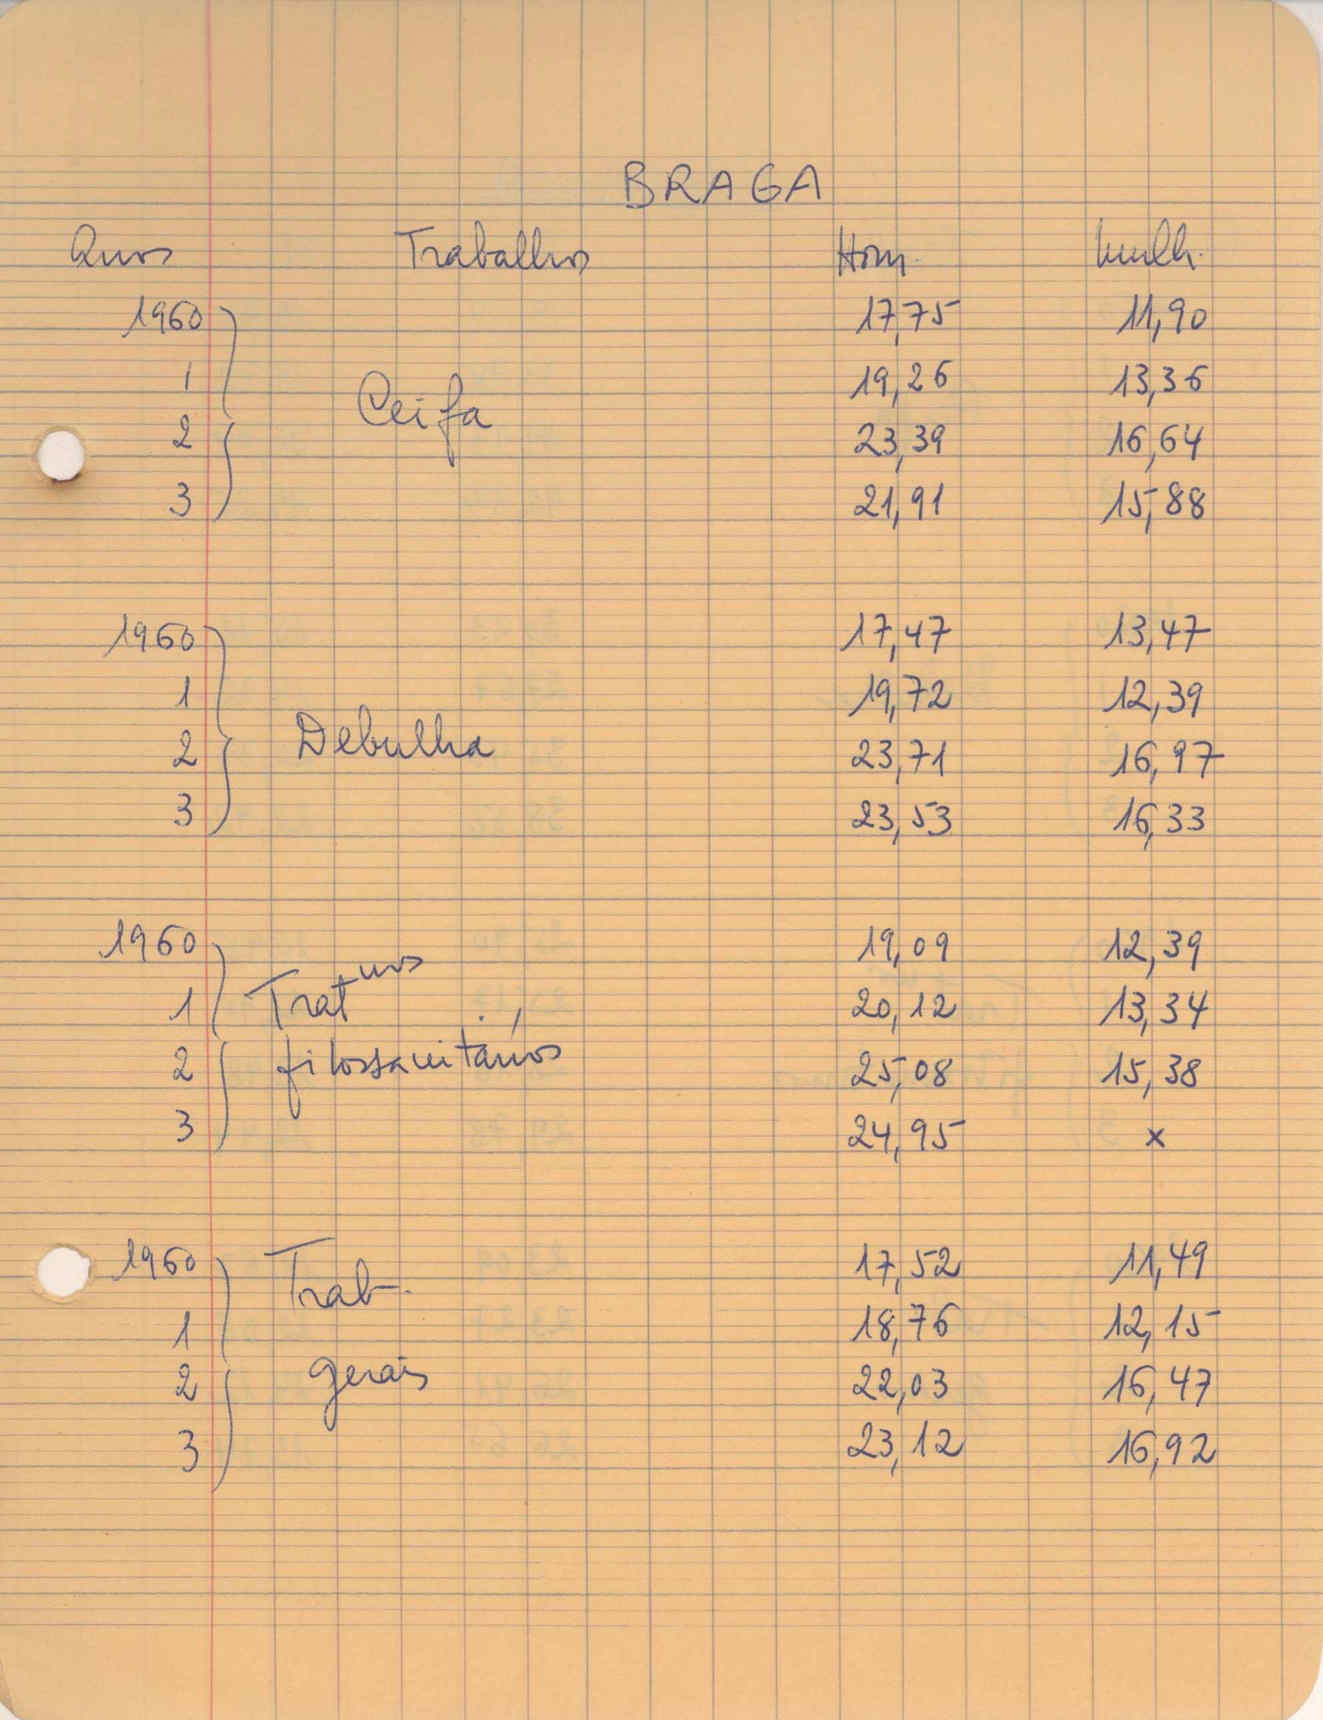 BRAGA
Anos Trabalhos Hom. Mulh.
1960 17,75 11,90
1 19,26 13,36
Ceifa
2 23,39 16,64
3 21,91 15,88
1960 17,47 13,47
1 19,72 12,39
2 Debulha 23,71 16,97
3 23,53 16,33
1960 19,09 12,39
1 Trat.tos 20,12 13,34
2 fitossanitários 25,08 15,38
3 24,95 x
1960 Trab. 17,52 11,49
1 18,76 12,15
2 gerais 22,03 16,47
3 23,12 16,92